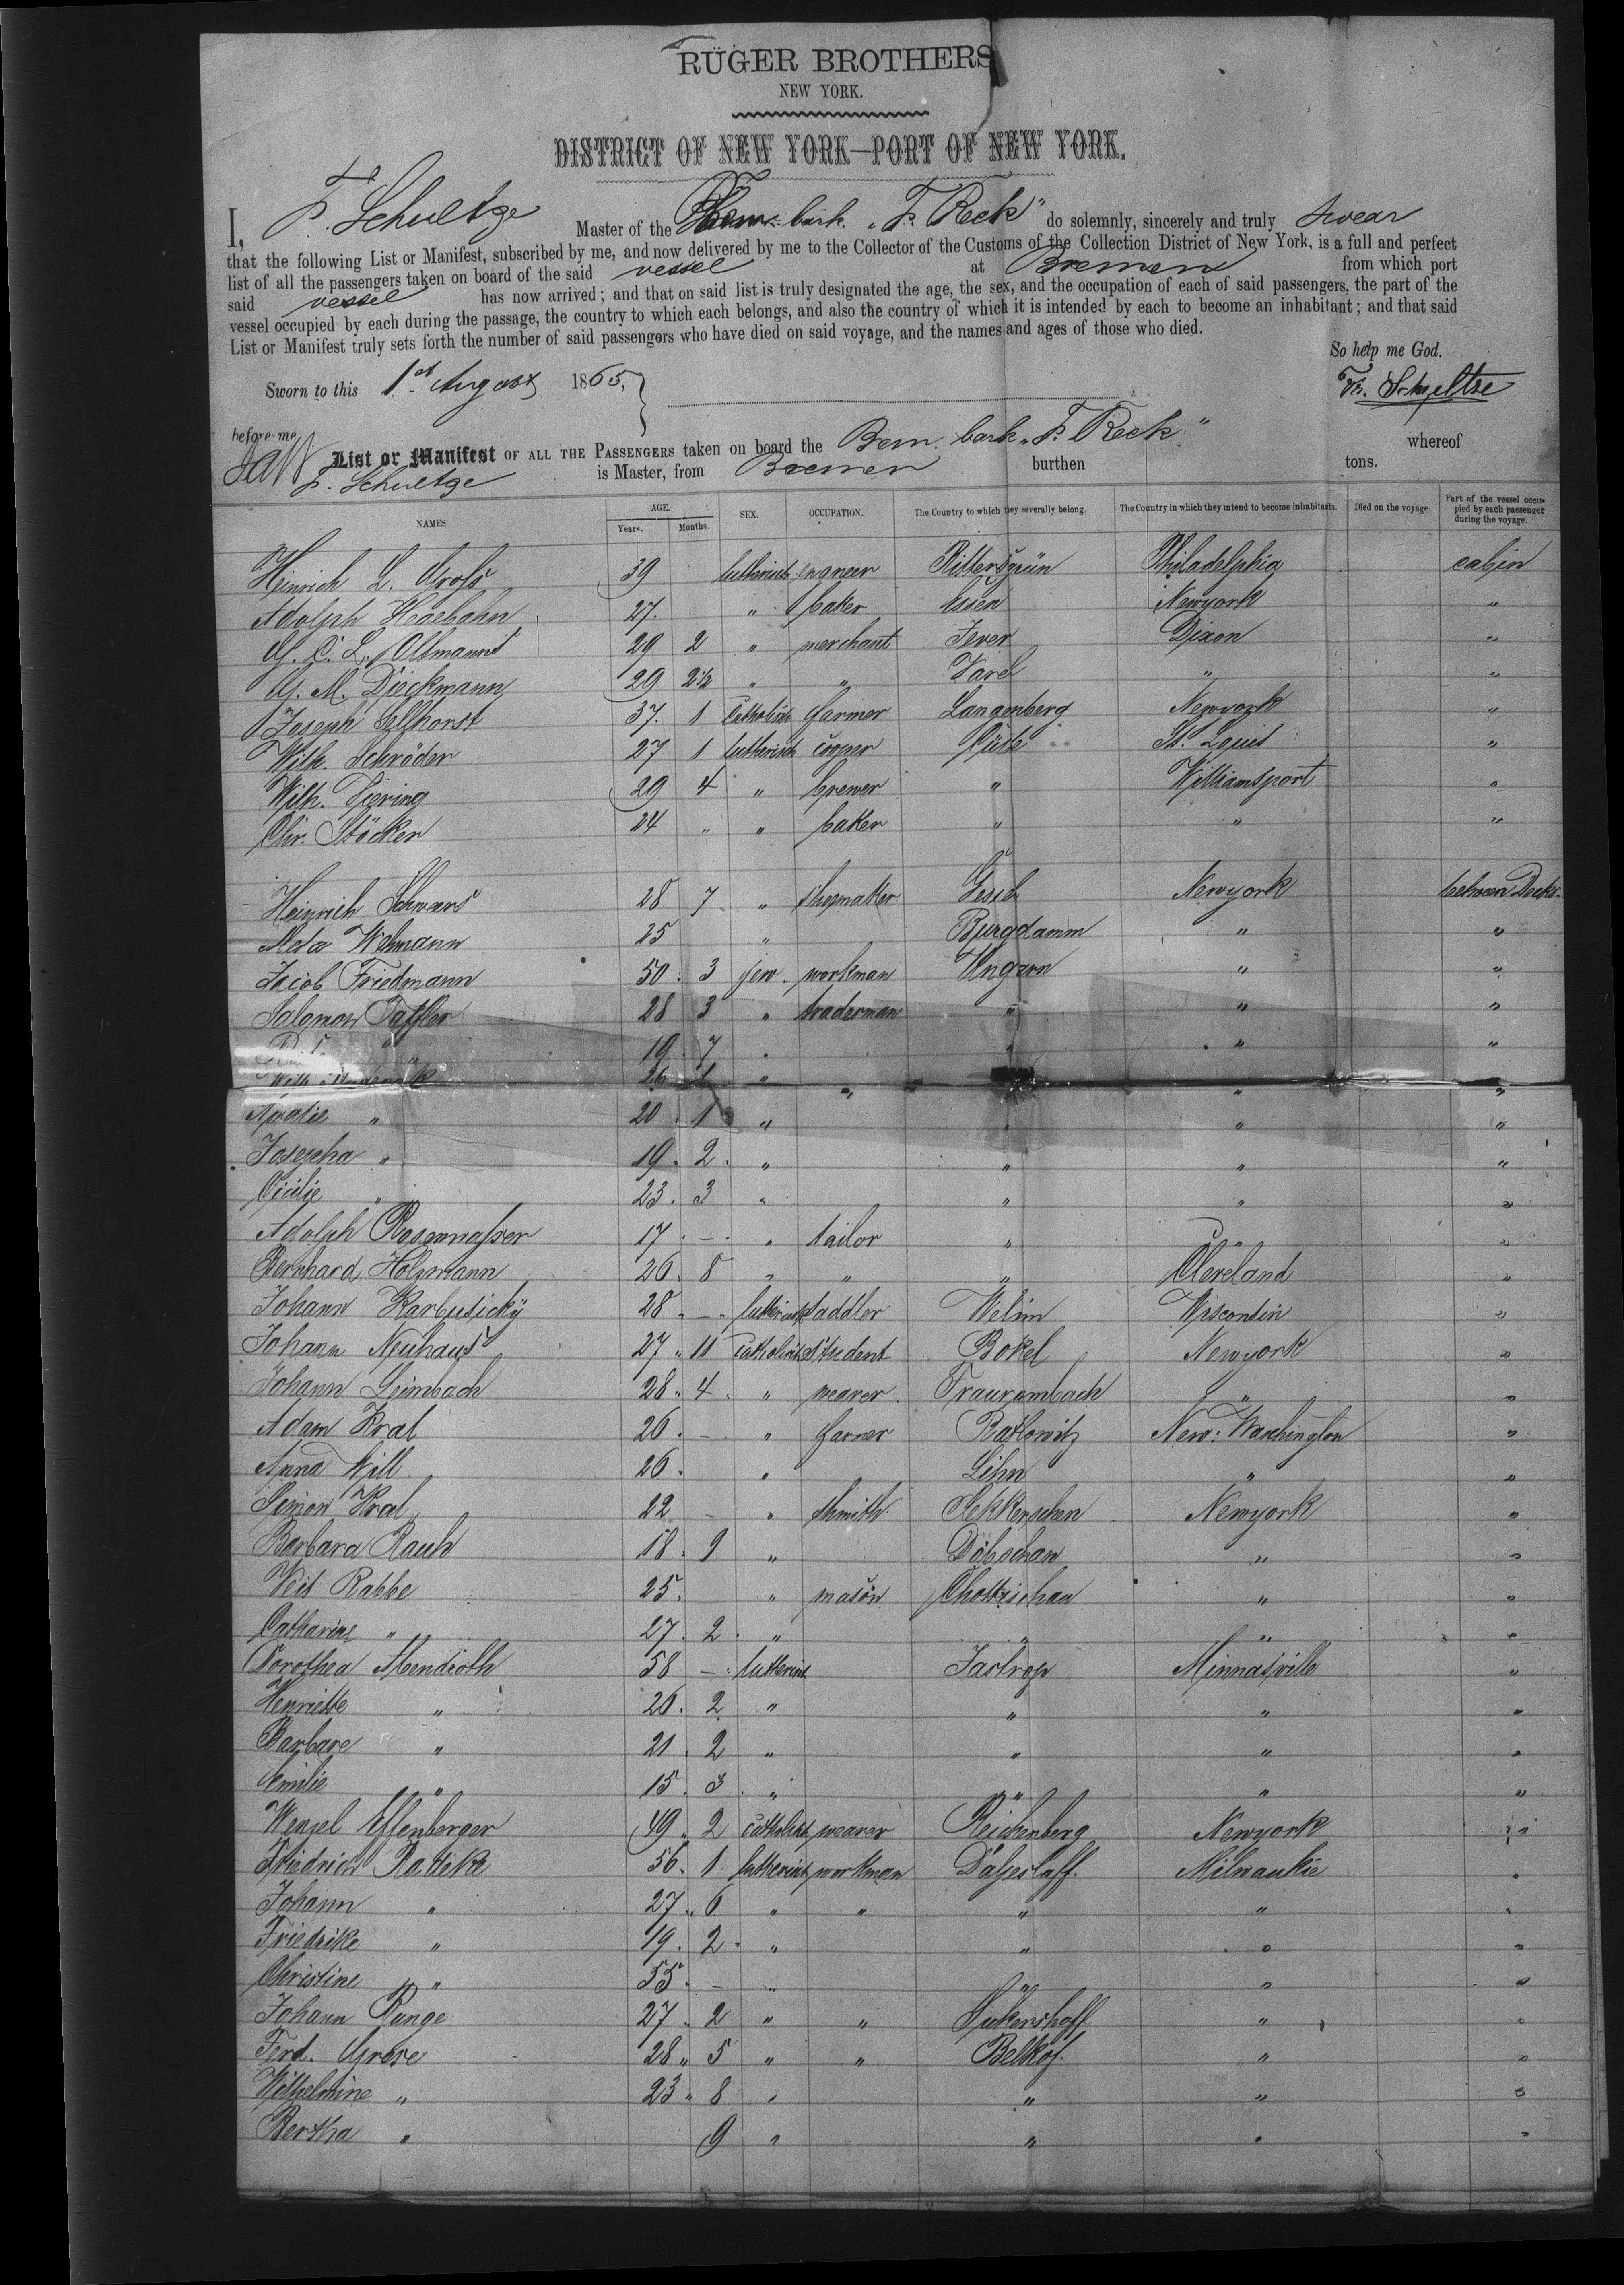 RÜGER BROTHERS
NEW YORK.
DISTRICT OF NEW YORK—PORT OF NEW YORK.
I, F. Schultze Master of the Brem. bark „F. Reck" do solemnly, sincerely and truly swear
that the following List or Manifest, subscribed by me, and now delivered by me to the Collector of the Customs of the Collection District of New York, is a full and perfect
list of all the passengers taken on board of the said vessel at Bremen from which port
said vessel has now arrived; and that on said list is truly designated the age, the sex, and the occupation of each of said passengers, the part of the
vessel occupied by each during the passage, the country to which each belongs, and also the country of which it is intended by each to become an inhabitant; and that said
List or Manifest truly sets forth the number of said passengers who have died on said voyage, and the names and ages of those who died.
So help me God.
Sworn to this 1st August 1865, Fr. Schultze
before me
List or Manifest OF ALL THE PASSENGERS taken on board the Brem. bark „F. Reck" whereof
F. Schultze is Master, from Bremen burthen tons.
NAMES AGE. Years. Months. SEX. OCCUPATION. The Country to which they severally belong. The Country in which they intend to become inhabitants. Died on the voyage. Part of the vessel occupied by each passenger during the voyage.
Heinrich L. Groß 39 lutherisch engneer Rittersgrün Philadelphia cabin
Adolph Hegebahn 27. " baker Essen Newyork "
G. C. L. Oltmanns 29 2 " merchant Jever Dixon "
G. M. Dieckmann 29 2½ " " Varel " "
Joseph Sellhorst 37. 1 Catholisch farmer Langenberg Newyork "
Wilh. Schröder 27 1 lutherisch cooper St. Louis "
Wilh. 29 4 " brewer " Williamsport "
Chr. Stöcker 24 " " baker " " "
Heinrich Schwars 28 7 " shoemaker Newyork between Decks.
Meta Wehmann 25 " Burgdamm " "
Jacob Friedmann 50. 3 jew. workman Ungarn " "
Salomon 28 3 " traderman " " "
" 19. 7 " " " "
26 " " " "
Amalie " 20. 1 " " "
Josepha " 19. 2. " " " "
Cicilie " 23. 3 " " " "
Adolph Rosenwasser 17. — " tailor " " "
Bernhard Holzmann 26. 8 " " " Cleveland "
Johann Karbusický 28 " — " lutherisch saddler Welim Wisconsin "
Johann Neuhaus 27 " 11 catholisch student Bokel Newyork "
Johann Leimbach 28 " 4. " weaver " "
Adam Kral 26. — " farmer New: Waschington "
Anna Will 26. " " "
Simon Kral 22 — " shmith. Newyork "
Barbara Rauh 18. 9 " Dobschan " "
Veit Rabbe 25. " mason Chottischau " "
Catharine " 27. 2. " " " "
Dorothea Abendroth 58 — lutherisch Jastrop Minnasville "
Henriette " 26. 2 " " " "
Barbare " 21. 2 " " " "
Emilie " 15. 3. " " " "
Wenzel Effenberger 49 " 2 catholisch weaver Reichenberg Newyork "
Friedrich Radeke 56. 1 lutherisch workman Milwaukie "
Johann " 27 " 6 " " " " "
Friedrike " 19. 2 " " " " "
Christine " 55. — " " " "
Johann Runge 27 " 2 " " " "
Ferd. Grese 28 " 5 " " Belkof. " "
Wilhelmine " 23 " 8 " " " "
Bertha " 9 " " " "